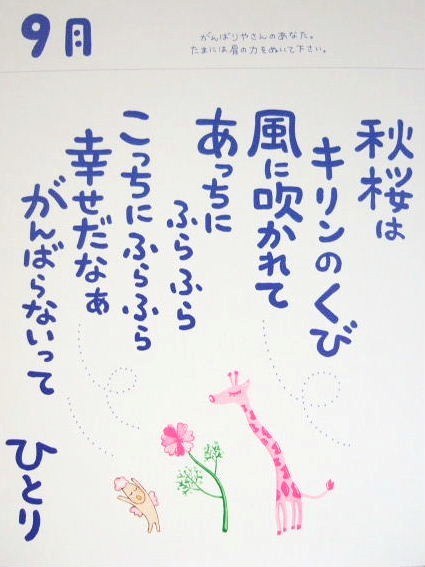 9月
がんばりやさんのあなた。
たまには肩の力をぬいて下さい。
秋桜は
キリンのくび
風に吹かれて
あっちに
ふらふら
こっちにふらふら
幸せだなぁ
がんばらないって
ひとり